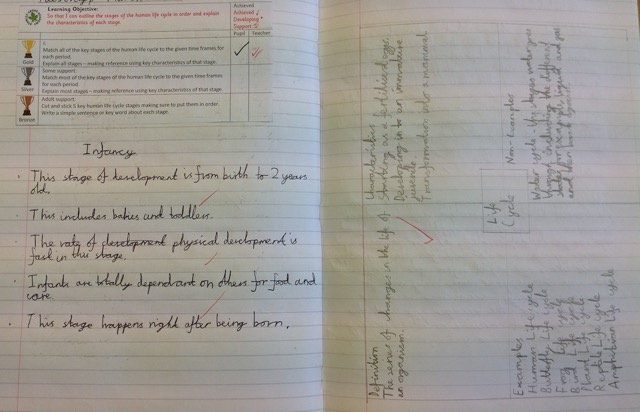 Learning Objective:
So that I can outline the stages of the human life cycle in order and explain
the characteristics of each stage.
Achieved
Achieved
Developing
Support S
Pupil Teacher
Match all of the key stages of the human life cycle to the given time frames
for each period.
Explain all stages – making reference using key characteristics of that stage.
Gold
Some support:
Match most of the key stages of the human life cycle to the given time frames
for each period.
Explain most stages – making reference using key characteristics of that stage.
Silver
Adult support:
Cut and stick 5 key human life cycle stages making sure to put them in order.
Write a simple sentence or key word about each stage.
Bronze
Infancy
· This stage of development is from birth to 2 years
old.
· This includes babies and toddlers.
· The rate of development physical development is
fast in this stage.
· Infants are totally dependant on others for food and
care.
· This stage happens right after being born.
Definition
The series of changes in the life of
an organism.
Characteristics
Starting as a
Developing into an immature
juvenile
Transformation into a
Life
Cycle
Examples
Human Life cycle
Butterfly Life cycle
Frog Life cycle
Bird Life cycle
Plant Life cycle
Reptile Life cycle
Amphibian Life cycle
Non-Examples
Water cycle